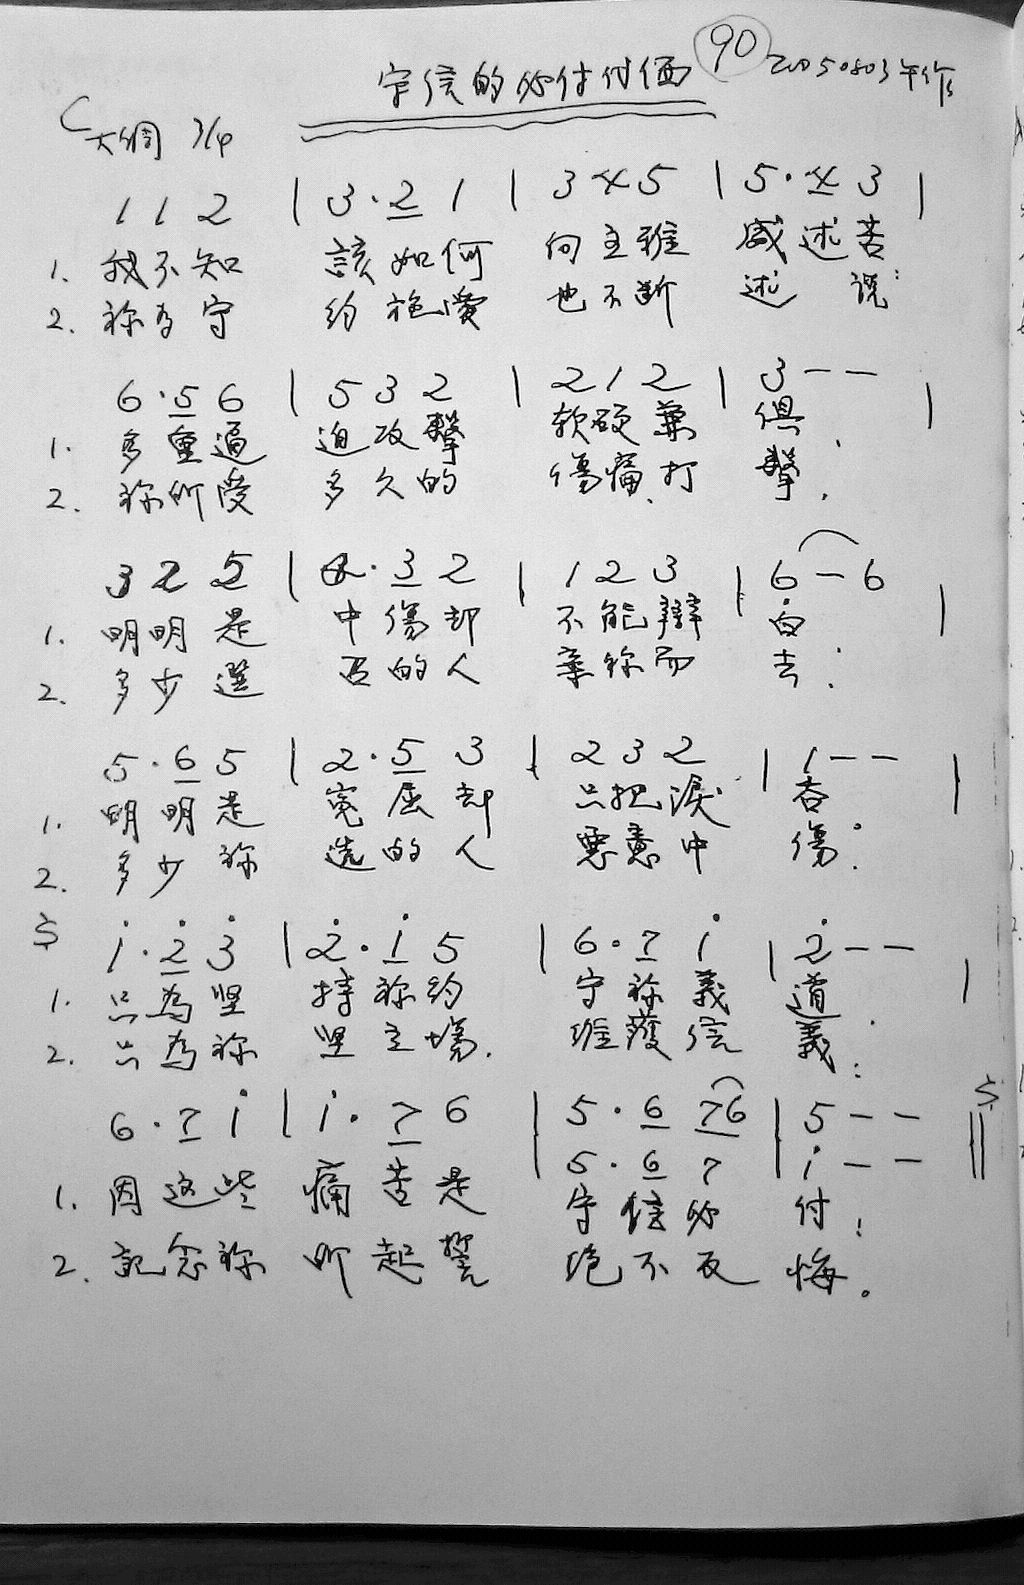 守信的必付代価 90 20050803年作
C大綱 3/4
1 1 2 | 3·2 1 | 3 4 5 | 5·4 3 |
1. 我不知 該如何 向主雅 威述苦
2. 祢為守 約施慶 也不斷 述說:
6·5 6 | 5 3 2 | 2 1 2 | 3 - - |
1. 多重逼 迫攻擊 软硬兼 俱,
2. 祢所受 多久的 傷痛,打 擊,
3 2 5 | 4·3 2 | 1 2 3 | 6 - 6 |
1. 明明是 中傷却 不能辯 白,
2. 多少選 召的人 棄祢而 去;
5·6 5 | 2·5 3 | 2 3 2 | 1 - - |
1. 明明是 冤屈却 只把淚 吞,
2. 多少祢 选的人 惡意中 傷:
1·2 3 | 2·1 5 | 6·7 1 | 2 - - |
1. 只為坚 持祢約 守祢義 道,
2. 只為祢 坚立場, 維護信 義:
6·7 1 | 1·7 6 | 5·6 76 | 5 - - ||
5·6 7 1 - -
1. 因这些 痛苦是 守信必 付;
2. 記念祢 所起誓 绝不反 悔。